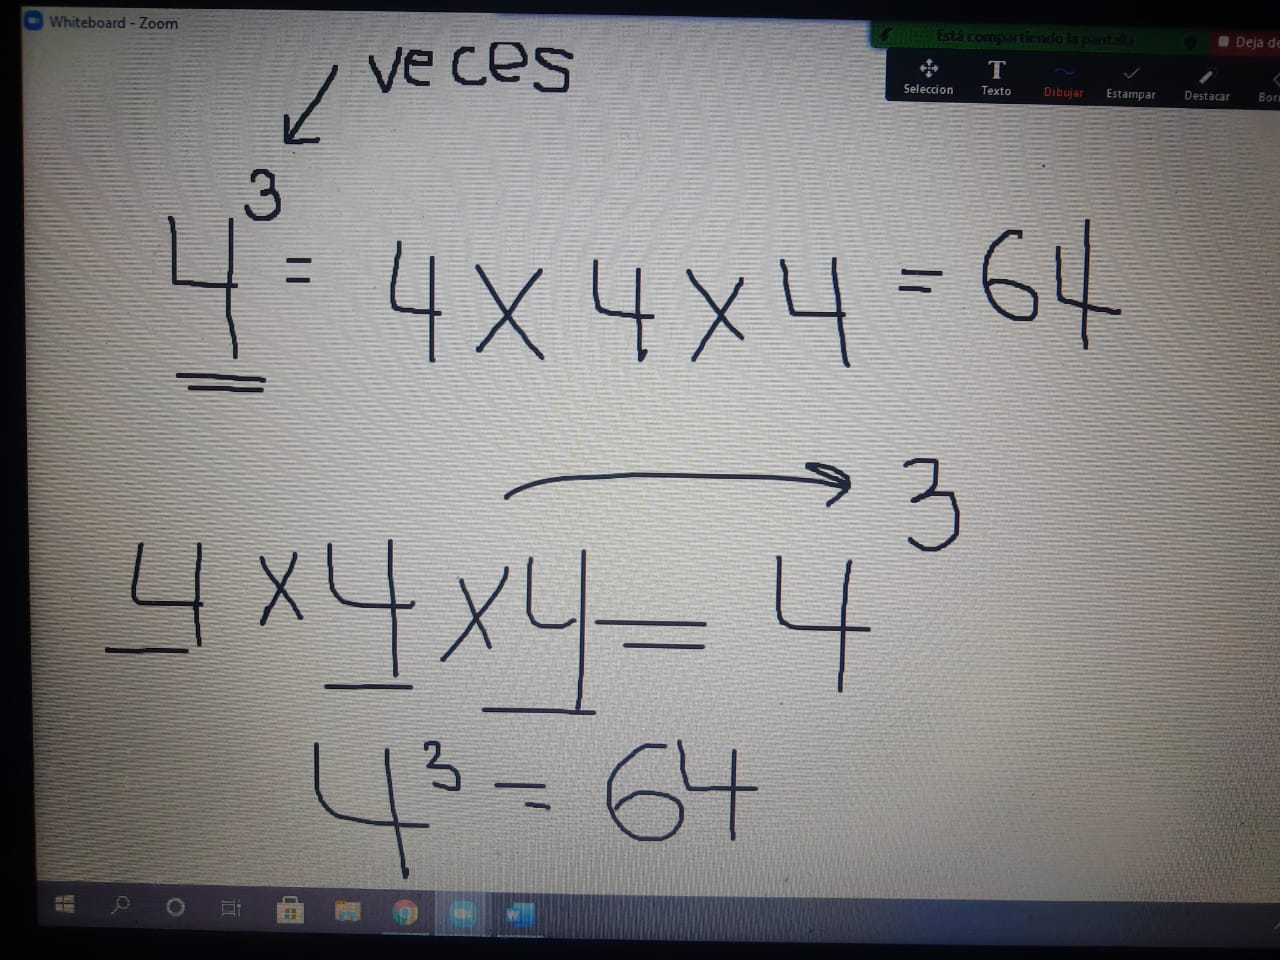 Whiteboard - Zoom
Está compartiendo la pantalla
Deja de
Seleccion Texto Dibujar Estampar Destacar Bor
veces
4³ = 4 x 4 x 4 = 64
4 x 4 x 4 = 4³
4³ = 64